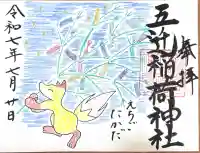 奉拝
五辻稲荷神社
えらい
にがた
令和七年七月廿日